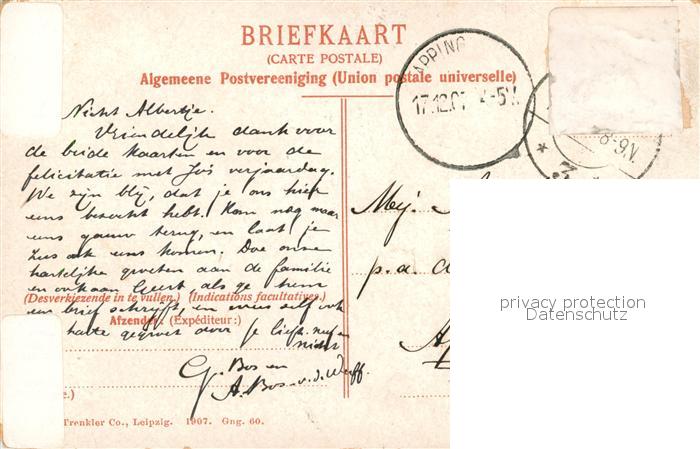 BRIEFKAART
(CARTE POSTALE)
Algemeene Postvereeniging (Union postale universelle)
APPING
17.12.07 4-5V.
8-9.N.
Nicht Albertje.
Vriendelijk dank voor
de beide kaarten en voor de
felicitatie met Jo's verjaardag.
We zijn blij, dat je ons hier
eens bezocht hebt. Kom nog maar
eens gauw terug, en laat je
Zus ook eens komen. Doe onze
hartelijke groeten aan de familie
en ook aan Geert, als ge hem
een brief schrijft, en wees zelf ook
harte gegroet door je liefh. neef en
nicht
G. Bos en
A. Bos-v.d. Werff.
(Desverkiezende in te vullen.) (Indications facultatives.)
Afzender: (Expéditeur:)
e.)
Trenkler Co., Leipzig. 1907. Gng. 60.
Mej.
p.a. d
privacy protection
Datenschutz